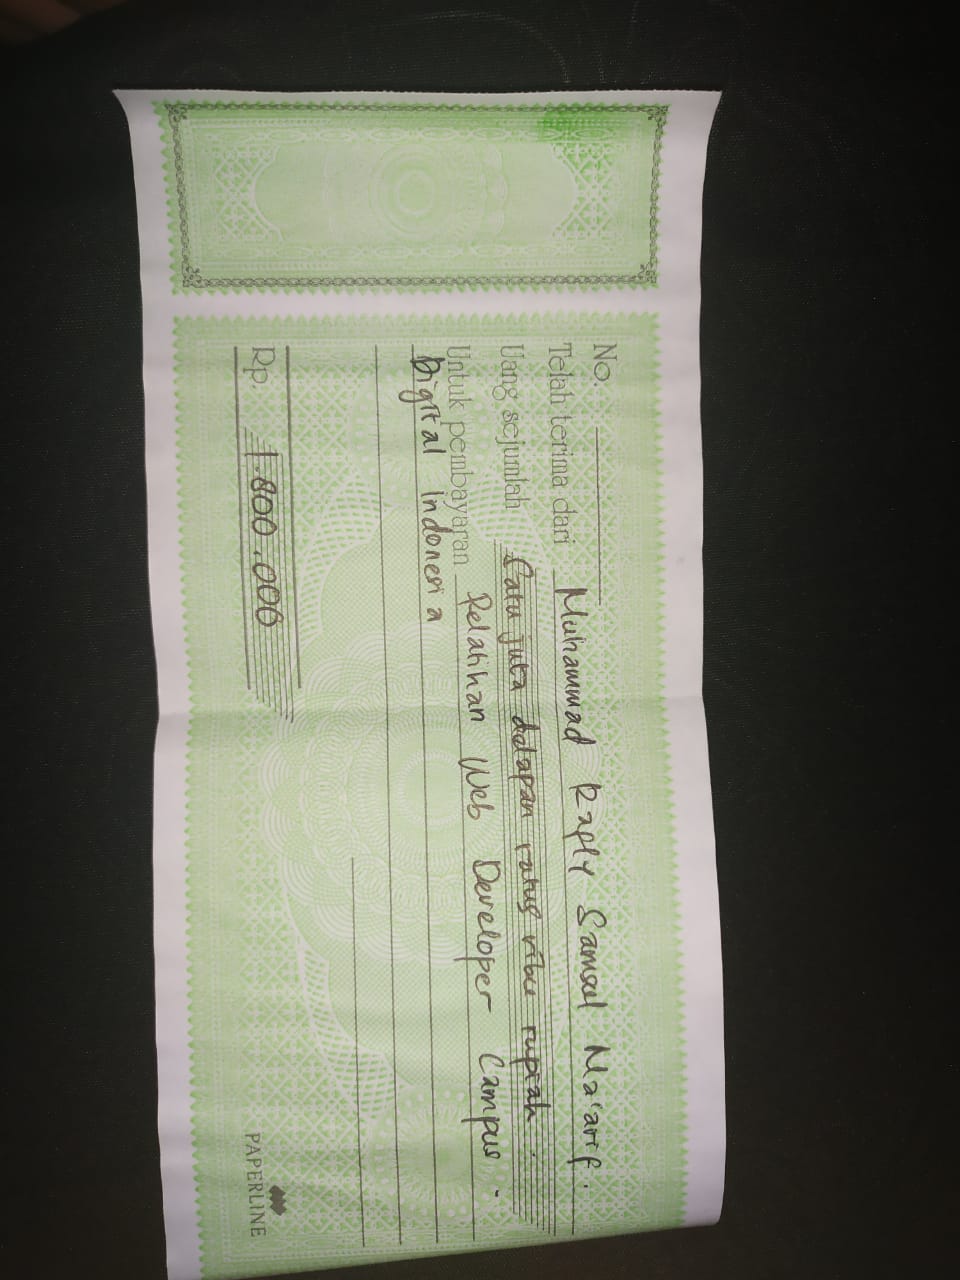 No.
Telah terima dari Muhammad Raply Samsul Ma'arif.
Uang sejumlah Satu juta delapan ratus ribu rupiah.
Untuk pembayaran Pelatihan Web Developer Campus -
Digital Indonesia
Rp. 1.800.000
PAPERLINE